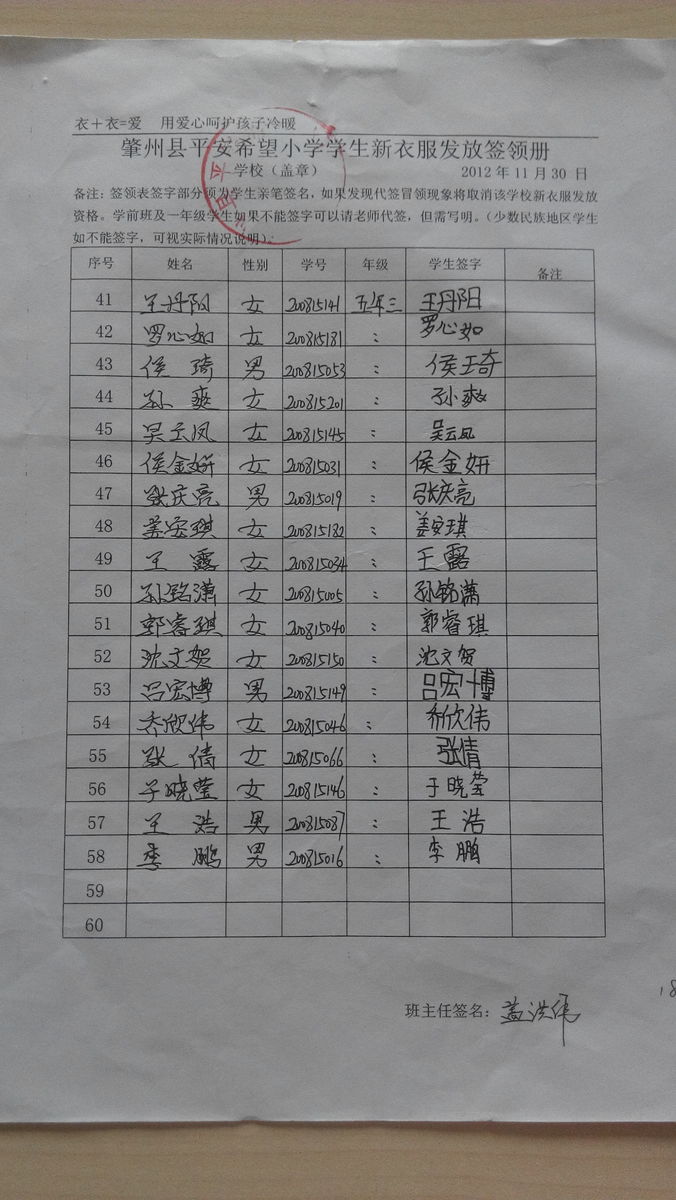 衣＋衣=爱 用爱心呵护孩子冷暖
肇州县平安希望小学学生新衣服发放签领册
学校（盖章） 2012 年 11 月 30 日
备注：签领表签字部分须为学生亲笔签名，如果发现代签冒领现象将取消该学校新衣服发放
资格。学前班及一年级学生如果不能签字可以请老师代签，但需写明。（少数民族地区学生
如不能签字，可视实际情况说明）。
序号 姓名 性别 学号 年级 学生签字 备注
41 王丹阳 女 200815141 五年三 王丹阳
42 罗心如 女 200815181 : 罗心如
43 侯琦 男 200815053 : 侯琦
44 孙爽 女 200815201 : 孙爽
45 吴云凤 女 200815145 : 吴云凤
46 侯金妍 女 200815031 : 侯金妍
47 张庆亮 男 200815019 : 张庆亮
48 姜安琪 女 200815182 : 姜安琪
49 王露 女 200815034 : 王露
50 孙铭潇 女 200815005 : 孙铭潇
51 郭睿琪 女 200815040 : 郭睿琪
52 沈文贺 女 200815150 : 沈文贺
53 吕宏博 男 200815149 : 吕宏博
54 乔欣伟 女 200815046 : 乔欣伟
55 张倩 女 200815066 : 张倩
56 于晓莹 女 200815146 : 于晓莹
57 王浩 男 200815087 : 王浩
58 李鹏 男 200815016 : 李鹏
59
60
18
班主任签名：盖洪伟